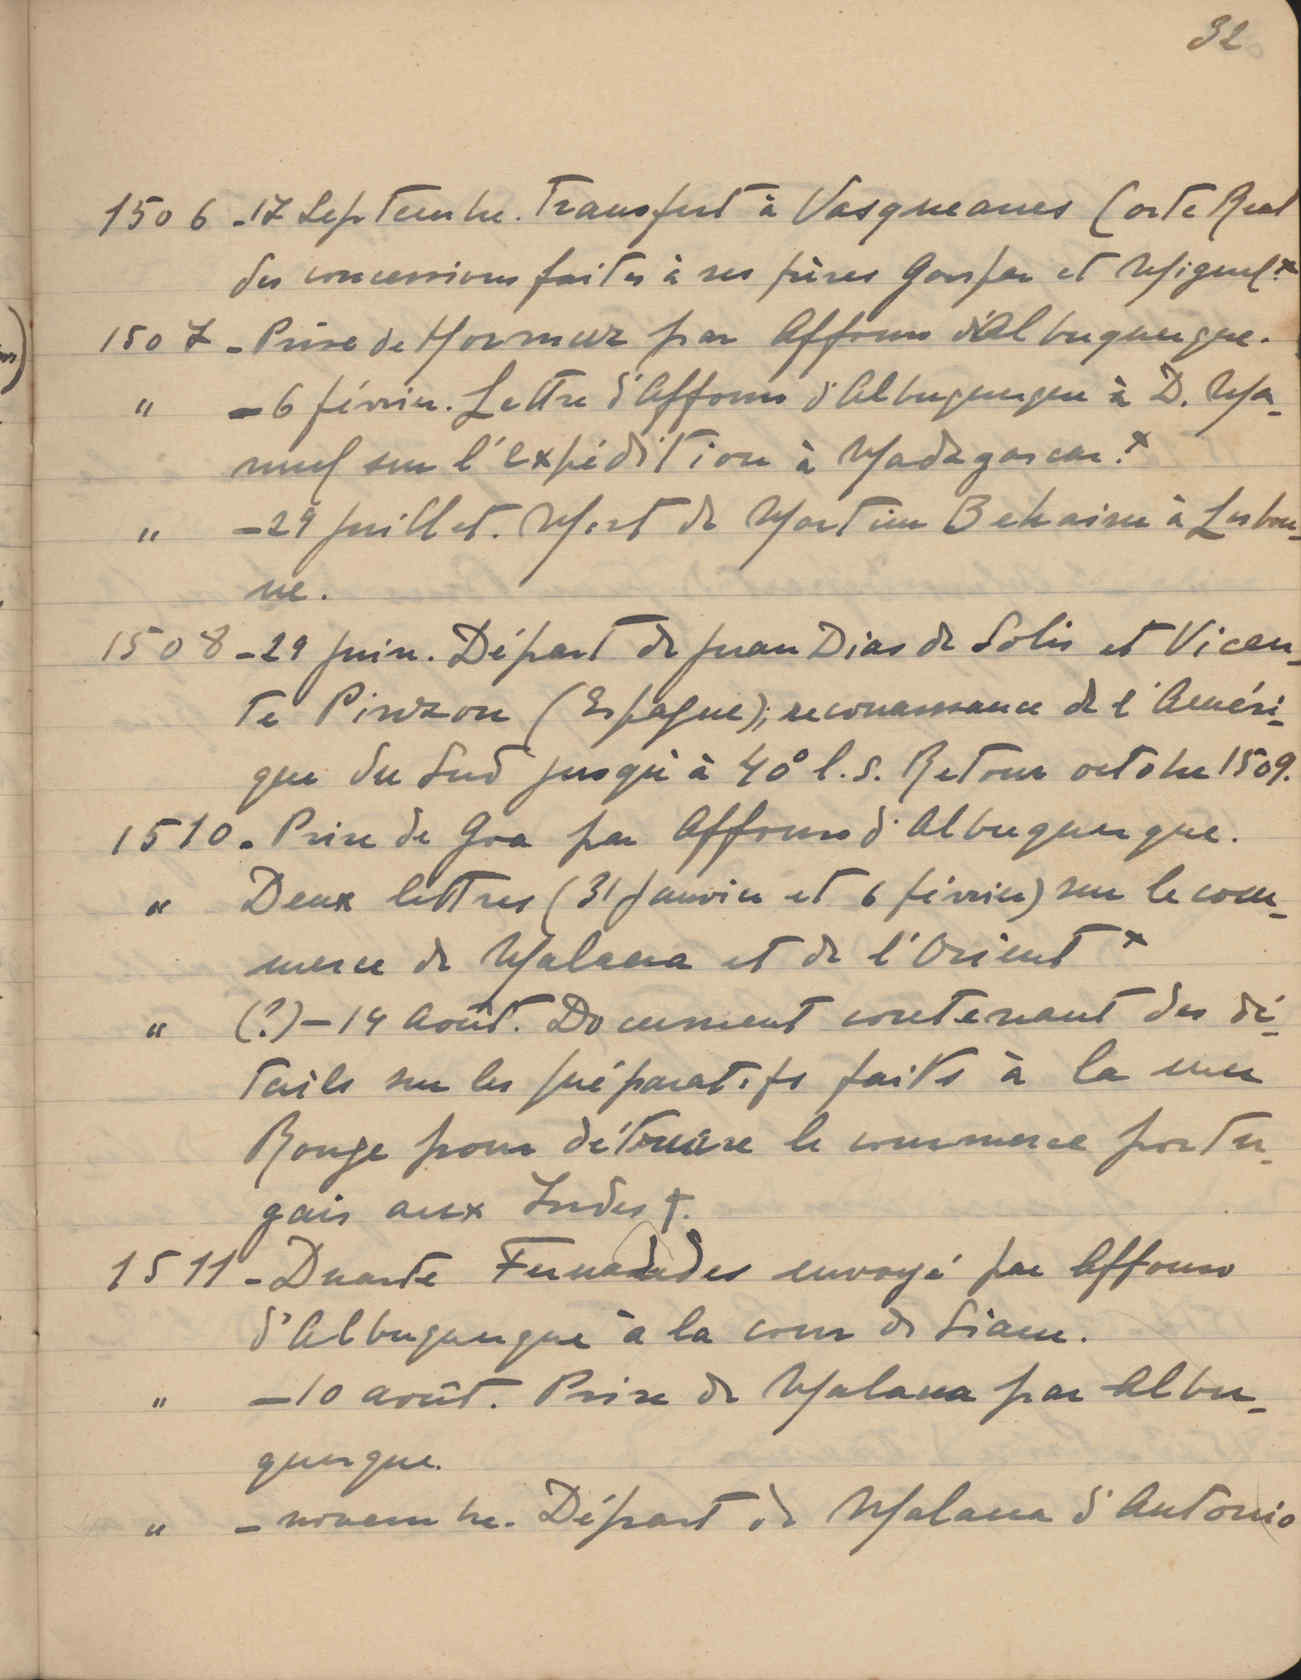 32
1506 - 17 Septembre. Transfert à Vasqueanes Corte Real
des concessions faites à ses frères Gaspar et Miguel.x
1507 - Prise de Hormuz par Affonso d'Albuquerque.
" - 6 février. Lettre d'Affonso d'Albuquerque à D. Ma-
nuel sur l'expédition à Madagascar.x
" - 29 juillet. Mort de Martim Behaim à Lisbon-
ne.
1508 - 29 juin. Départ de Juan Dias de Solis et Vicen-
te Pinzon (Espagne); reconnaissance de l'Améri-
que du Sud jusqu'à 40° l.s. Retour octobre 1509.
1510 - Prise de Goa par Affonso d'Albuquerque.
" Deux lettres (31 janvier et 6 février) sur le com-
merce de Malacca et de l'Orient x
" (?) - 14 août. Document contenant des dé-
tails sur les préparatifs faits à la mer
Rouge pour détruire le commerce portu-
gais aux Indes †.
1511 - Duarte Fernandes envoyé par Affonso
d'Albuquerque à la cour de Siam.
" - 10 août. Prise de Malacca par Albu-
querque.
" - novembre. Départ de Malacca d'Antonio